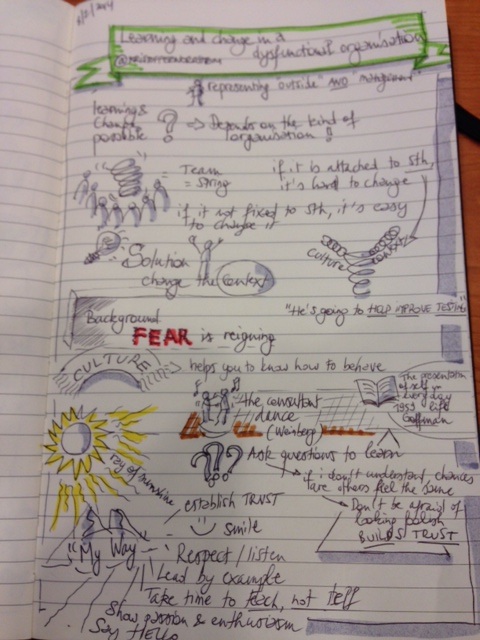 Learning and change in a
dysfunctional organisation
representing "outside" AND "management"
learning &
change
possible
? => Depends on the kind of
organisation !
Team
= string
if it is attached to sth,
it's hard to change
if it not fixed to sth, it's easy
to change it
culture
Solution
change the context
"He's going to HELP IMPROVE TESTING"
Background
FEAR is reigning
CULTURE
helps you to know how to behave
the consultant
dance
(Weinberg)
The presentation
of self in
everyday
life
1959
Goffman
ray of sunshine
??? Ask questions to learn
if i don't understand chances
are others feel the same
Don't be afraid of
looking foolish
BUILDS TRUST
establish TRUST
smile
"My Way"
Respect / listen
Lead by example
Take time to teach, not tell
Show passion & enthusiasm
Say HELLO